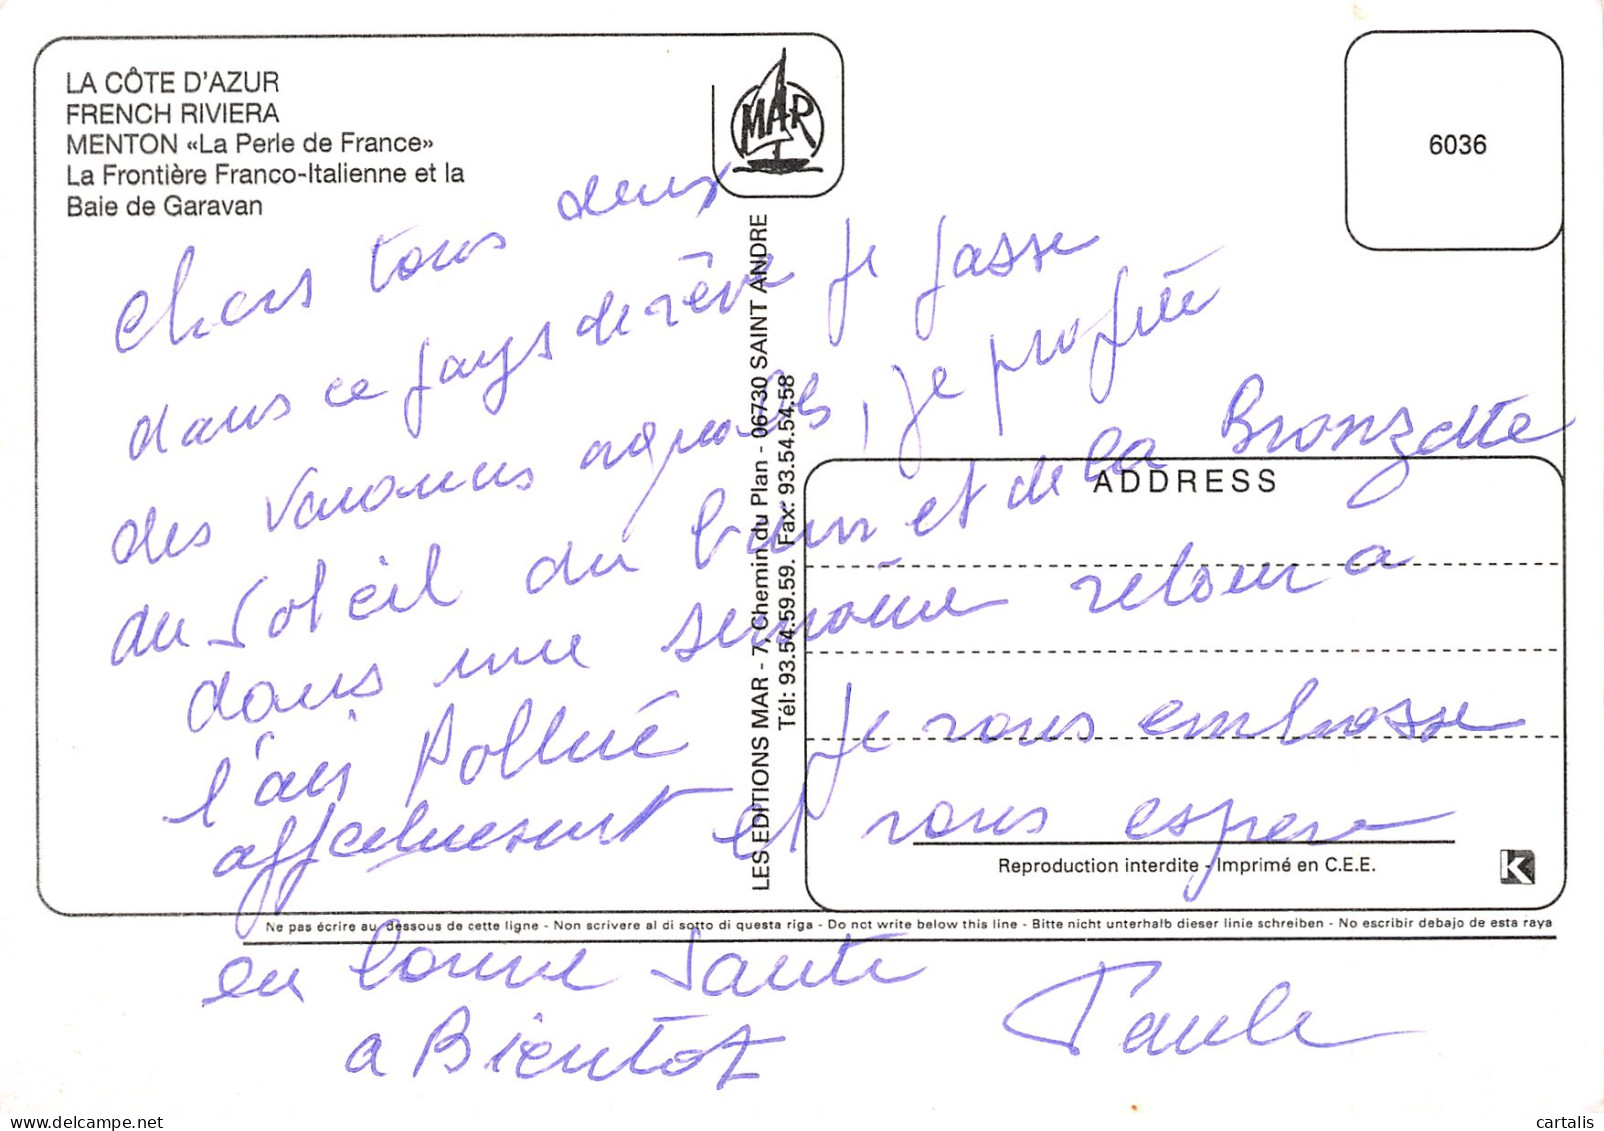 LA CÔTE D'AZUR
FRENCH RIVIERA
MENTON «La Perle de France»
La Frontière Franco-Italienne et la
Baie de Garavan
MAR
6036
Chers tous deux
dans ce pays de rêve je passe
des vacances agréables, je profite
du Soleil du bain et de la Bronzette
dans une semaine retour a
l'air Pollué Je vous embrasse
affectueusement et vous espere
en bonne Sante
a Bientot Paule
LES EDITIONS MAR - 7, Chemin du Plan - 06730 SAINT ANDRE
Tél: 93.54.59.59. Fax: 93.54.54.58
ADDRESS
Reproduction interdite - Imprimé en C.E.E.
K
Ne pas écrire au dessous de cette ligne - Non scrivere al di sotto di questa riga - Do not write below this line - Bitte nicht unterhalb dieser linie schreiben - No escribir debajo de esta raya
cartalis